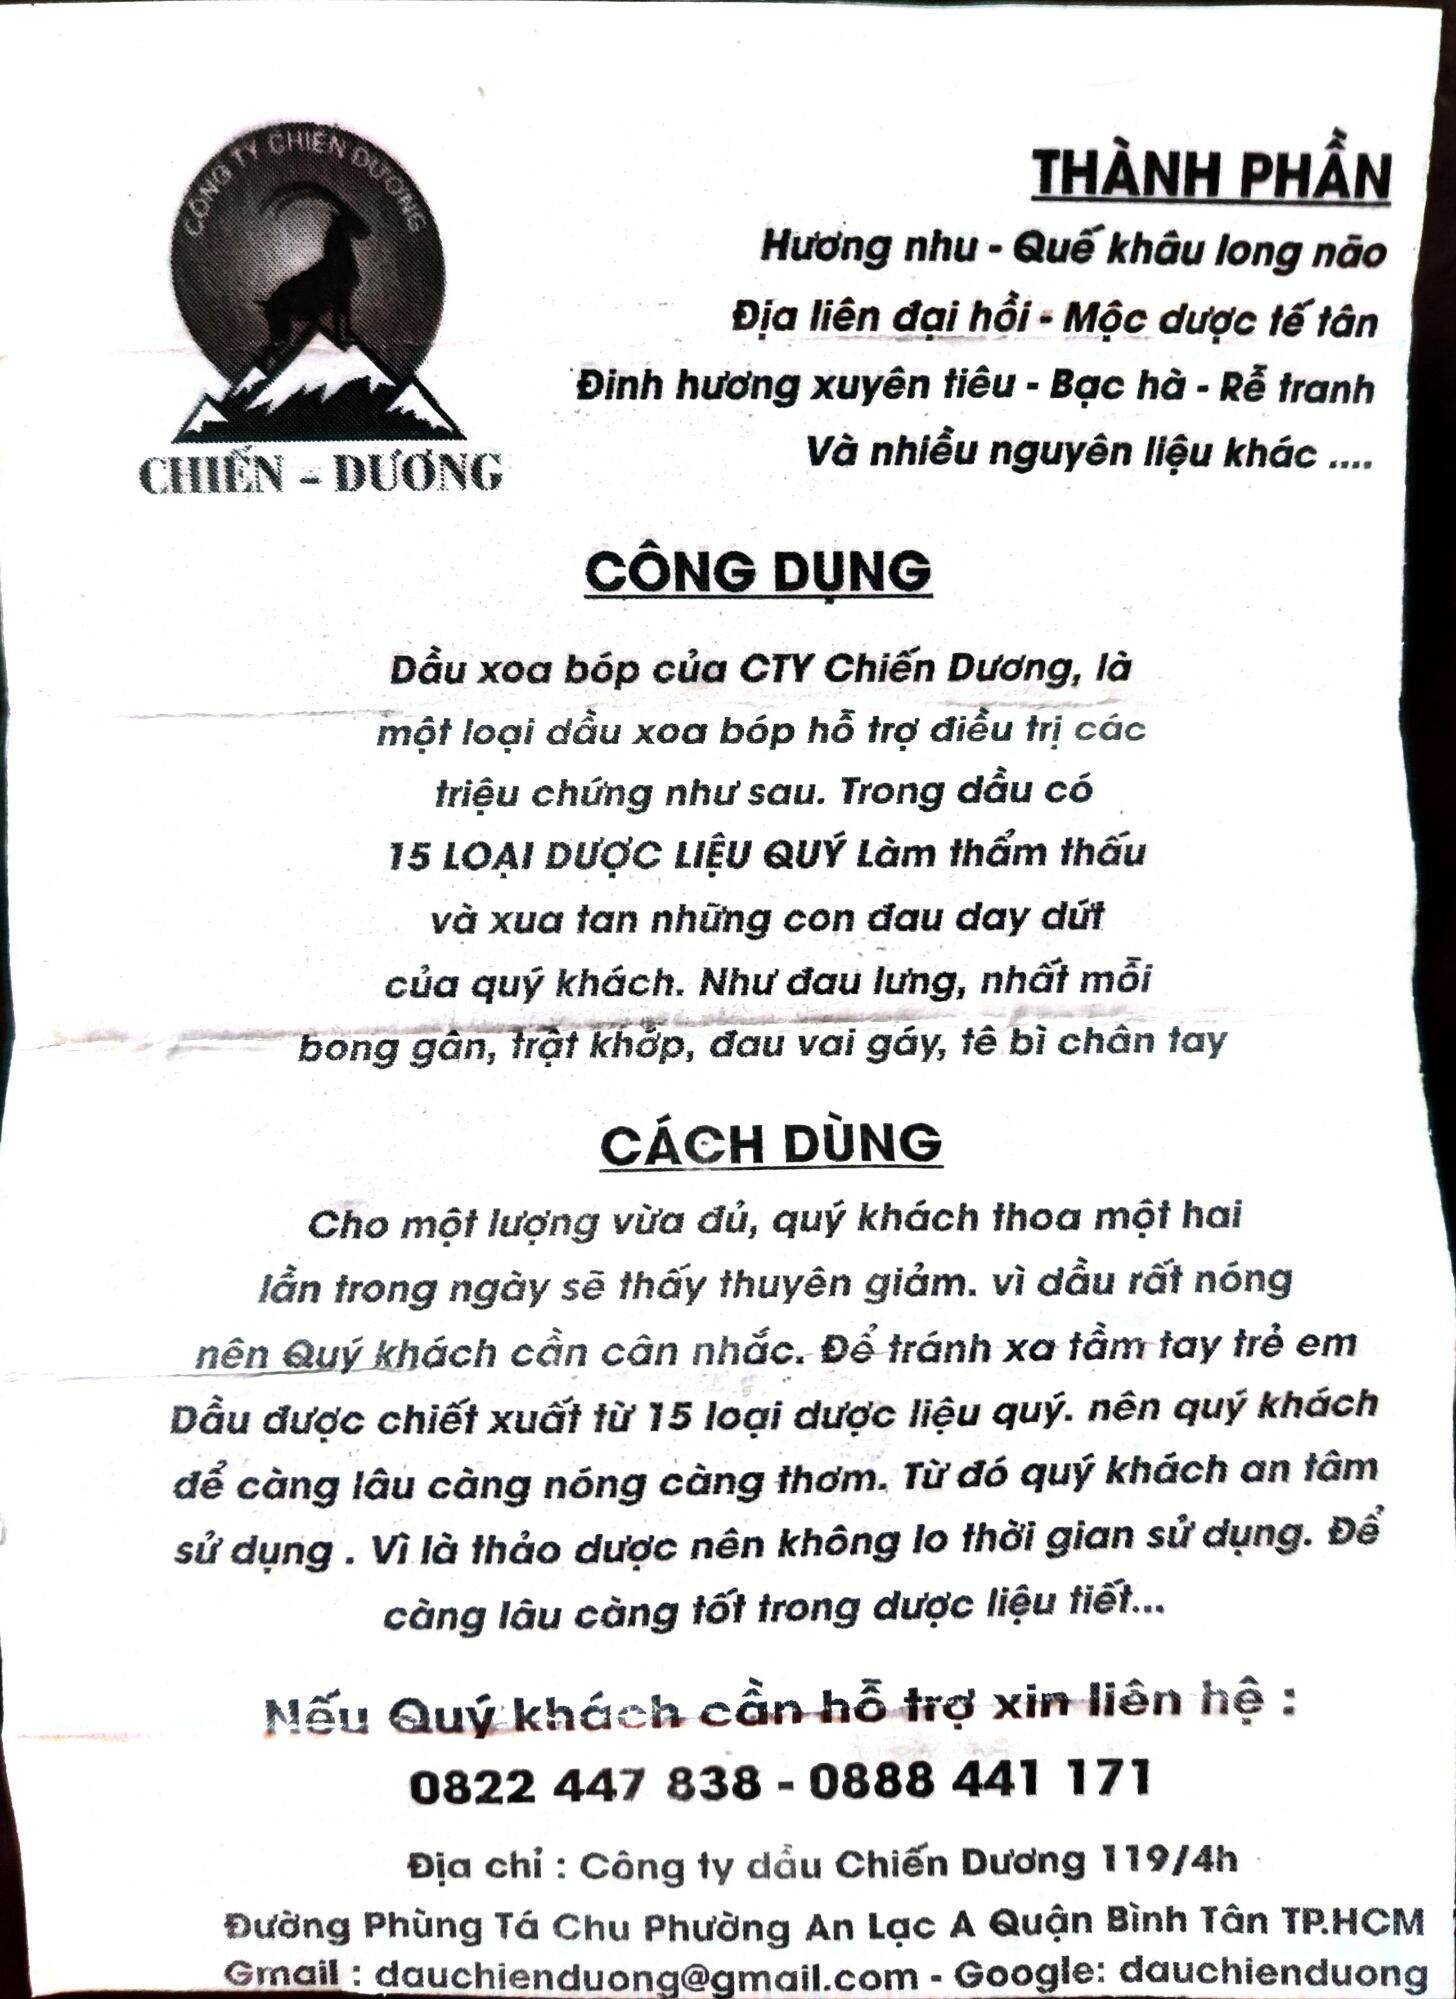 CÔNG TY CHIẾN DƯƠNG
CHIẾN - DƯƠNG
THÀNH PHẦN
Hương nhu - Quế khâu long não
Địa liên đại hồi - Mộc dược tế tân
Đinh hương xuyên tiêu - Bạc hà - Rễ tranh
Và nhiều nguyên liệu khác ....
CÔNG DỤNG
Dầu xoa bóp của CTY Chiến Dương, là
một loại dầu xoa bóp hỗ trợ điều trị các
triệu chứng như sau. Trong dầu có
15 LOẠI DƯỢC LIỆU QUÝ Làm thẩm thấu
và xua tan những con đau day dứt
của quý khách. Như đau lưng, nhất mỗi
bong gân, trật khớp, đau vai gáy, tê bì chân tay
CÁCH DÙNG
Cho một lượng vừa đủ, quý khách thoa một hai
lần trong ngày sẽ thấy thuyên giảm. vì dầu rất nóng
nên Quý khách cần cân nhắc. Để tránh xa tầm tay trẻ em
Dầu được chiết xuất từ 15 loại dược liệu quý. nên quý khách
để càng lâu càng nóng càng thơm. Từ đó quý khách an tâm
sử dụng . Vì là thảo dược nên không lo thời gian sử dụng. Để
càng lâu càng tốt trong dược liệu tiết...
Nếu Quý khách cần hỗ trợ xin liên hệ :
0822 447 838 - 0888 441 171
Địa chỉ : Công ty dầu Chiến Dương 119/4h
Đường Phùng Tá Chu Phường An Lạc A Quận Bình Tân TP.HCM
Gmail : dauchienduong@gmail.com - Google: dauchienduong